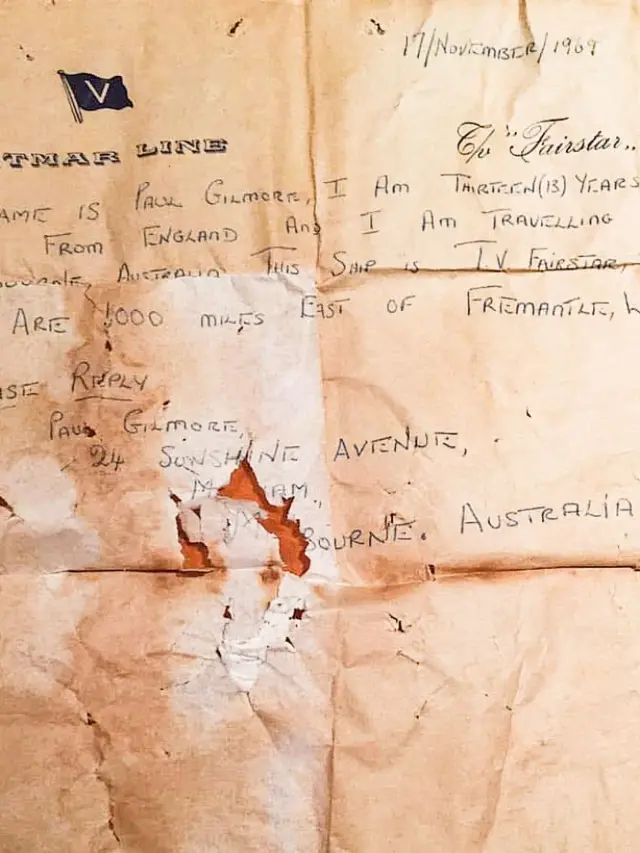 17/NOVEMBER/1969
V
TMAR LINE
T/v "Fairstar"
AME IS PAUL GILMORE, I AM THIRTEEN (13) YEARS
FROM ENGLAND AND I AM TRAVELLING
OURNE, AUSTRALIA THIS SHIP IS T.V FAIRSTAR,
ARE 1000 MILES EAST OF FREMANTLE, W
ASE REPLY
PAUL GILMORE,
24 SUNSHINE AVENUE,
AM,
BOURNE. AUSTRALIA